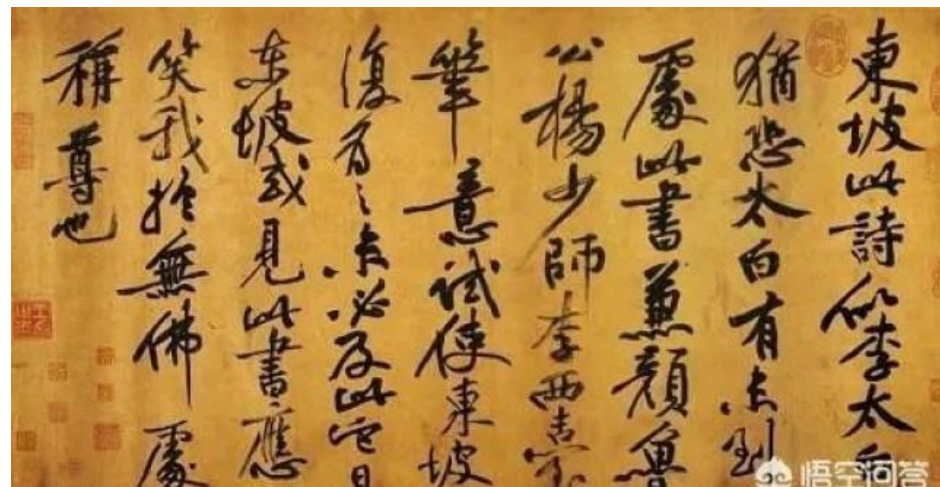 東坡此詩似李太白
猶恐太白有未到
處此書兼顏魯
公楊少師李西臺
筆意試使東坡
復為之未必及此它日
东坡或見此書應
笑我於無佛處
稱尊也
悟空问答